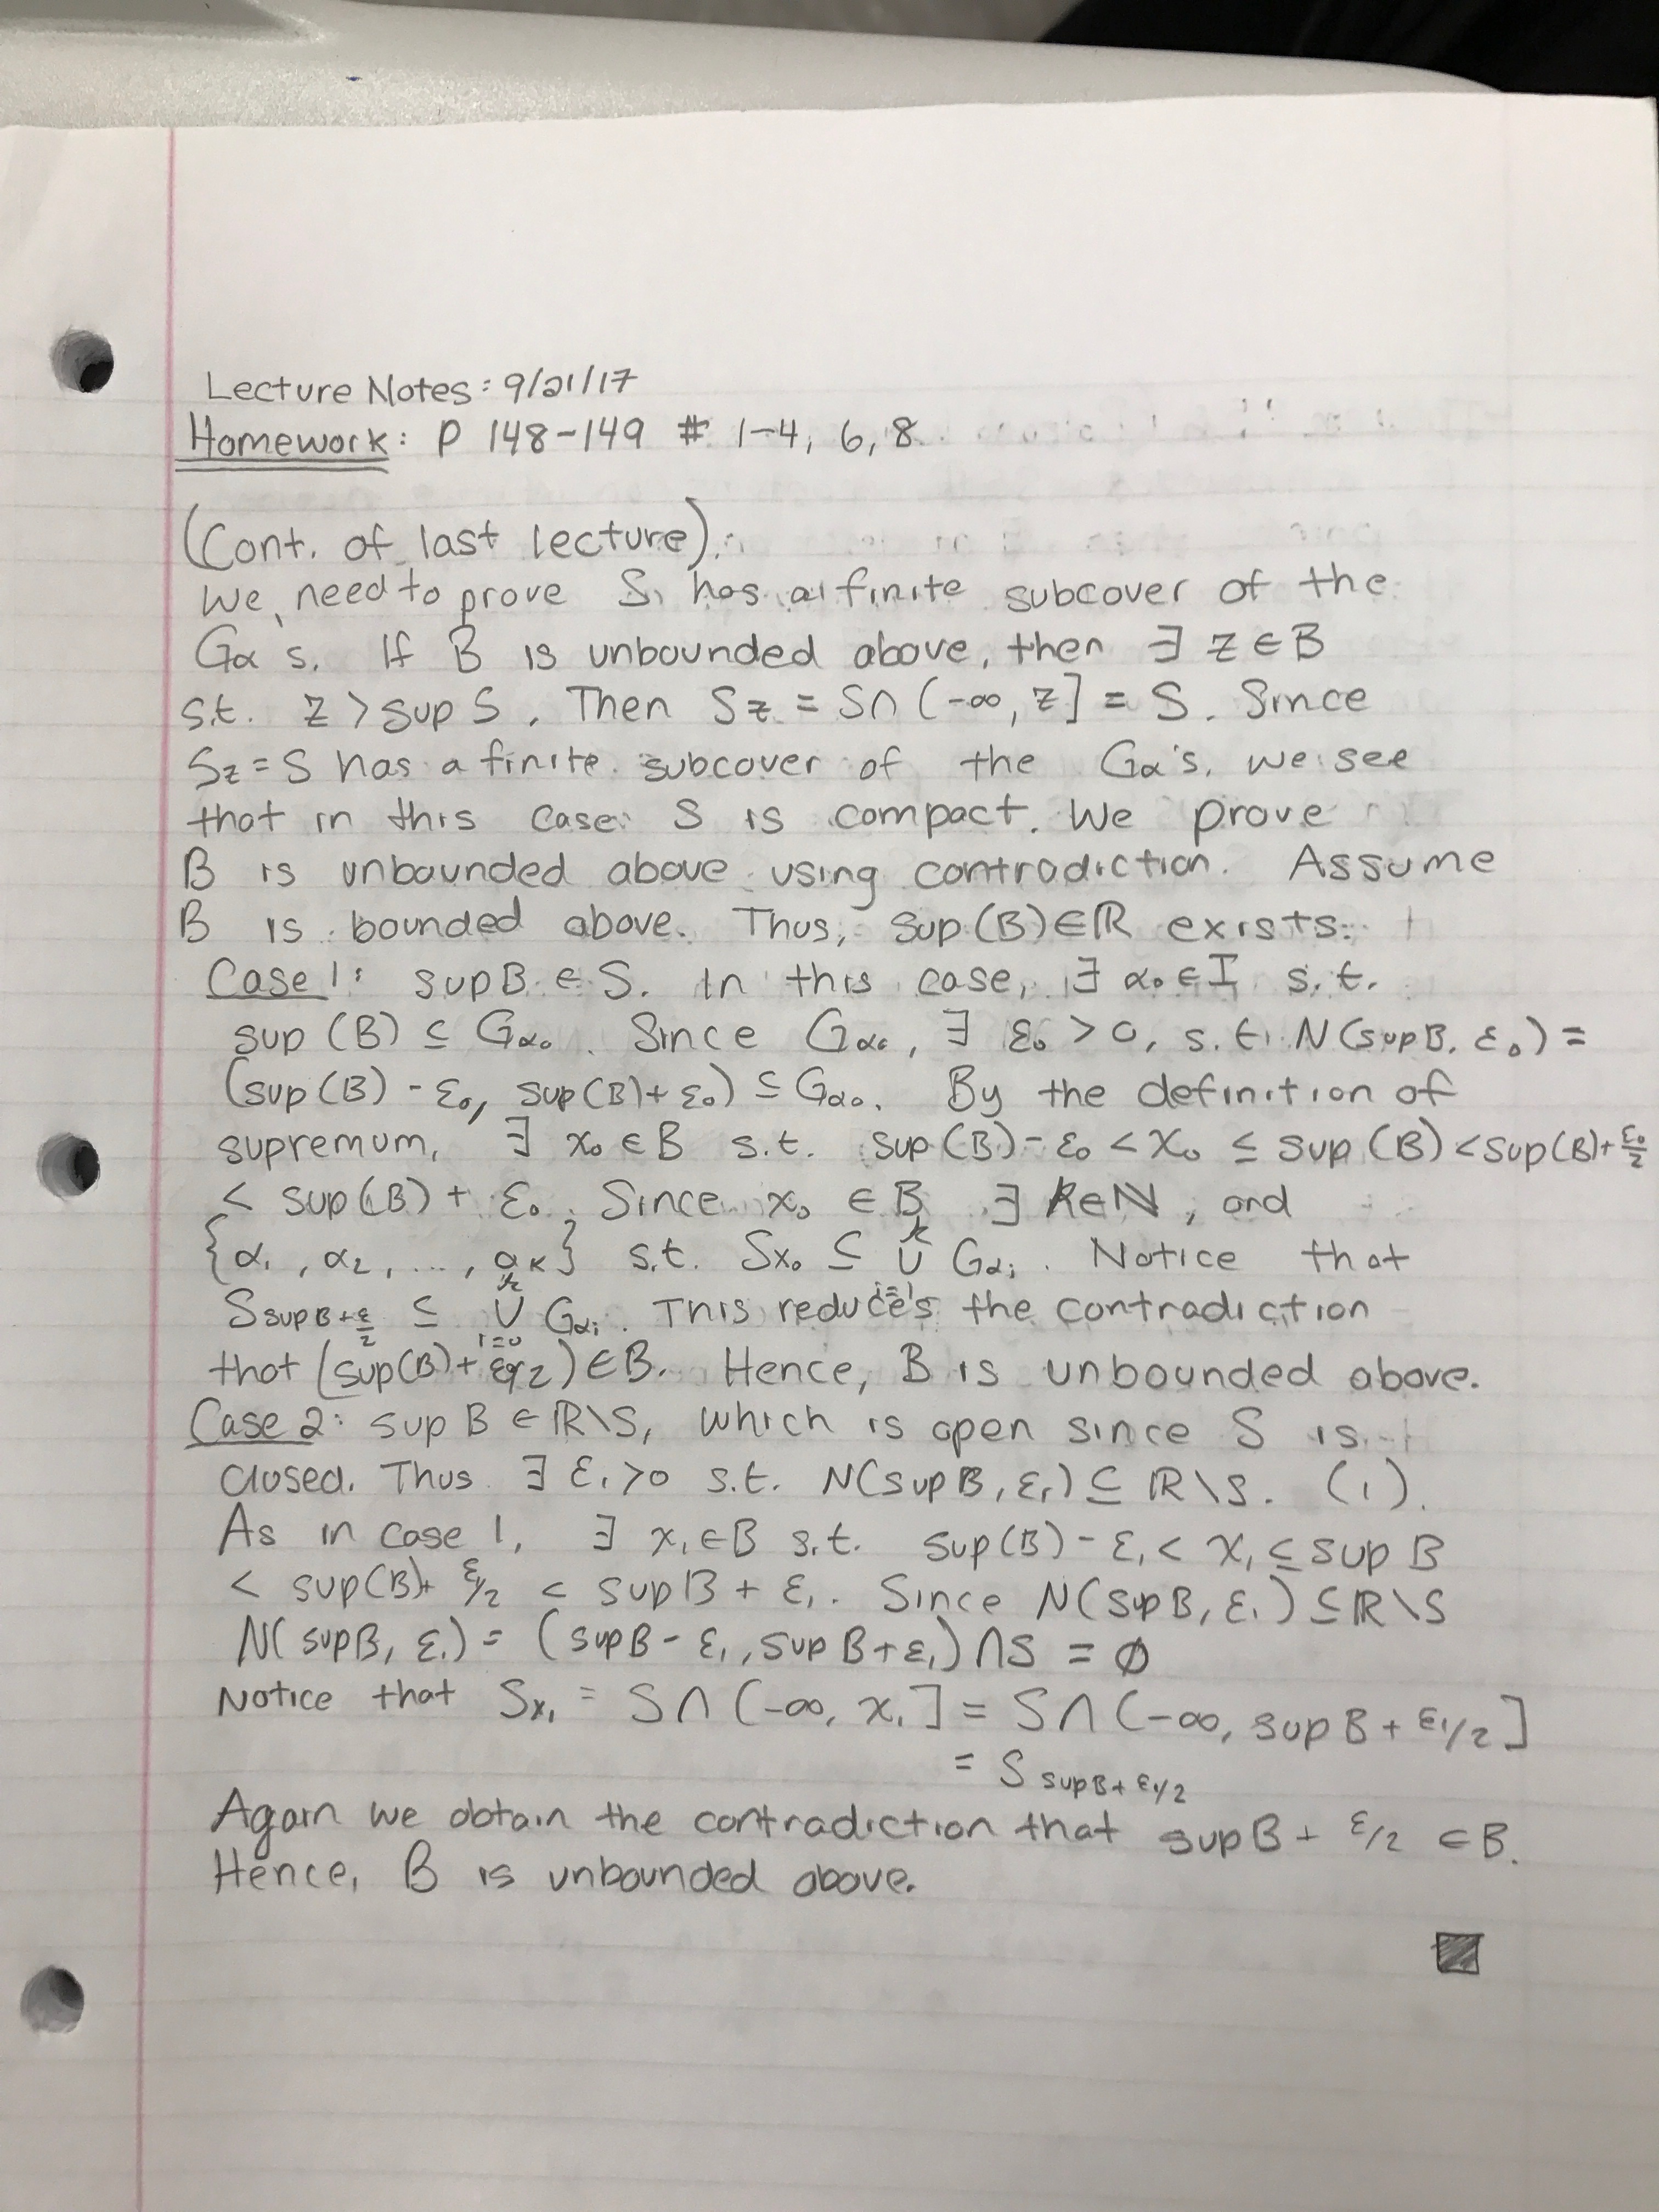 Lecture Notes: 9/21/17
Homework: P 148-149 # 1-4, 6, 8
(Cont. of last lecture).
We need to prove S has a finite subcover of the
Gα's. If B is unbounded above, then ∃ z ∈ B
s.t. z > sup S. Then Sz = S∩(-∞, z] = S. Since
Sz = S has a finite subcover of the Gα's, we see
that in this case S is compact. We prove
B is unbounded above using contradiction. Assume
B is bounded above. Thus, sup(B)∈ℝ exists.
Case 1: sup B ∈ S. In this case, ∃ α₀ ∈ I s.t.
sup (B) ⊆ Gα₀. Since Gα₀, ∃ ε₀ > 0, s.t. N(sup B, ε₀) =
(sup(B) - ε₀, sup(B)+ε₀) ⊆ Gα₀. By the definition of
supremum, ∃ x₀ ∈ B s.t. sup(B)-ε₀ < x₀ ≤ sup (B) < sup(B)+ε₀/2
< sup(B) + ε₀. Since x₀ ∈ B ∃ k∈ℕ, and
{α₁, α₂, ..., αk} s.t. Sx₀ ⊆ ∪ᵏᵢ₌₁ Gαᵢ. Notice that
S sup B+ε/2 ⊆ ∪ᵏᵢ₌₀ Gαᵢ. This reduce's the contradiction
that (sup(B)+ε₀/2)∈B. Hence, B is unbounded above.
Case 2: sup B ∈ ℝ\S, which is open since S is
closed. Thus ∃ ε₁>0 s.t. N(sup B, ε₁) ⊆ ℝ\S. (1).
As in case 1, ∃ x₁∈B s.t. sup(B)-ε₁ < x₁ ≤ sup B
< sup(B)+ ε/2 < sup B + ε₁. Since N(sup B, ε₁) ⊆ ℝ\S
N(sup B, ε₁) = (sup B - ε₁, sup B+ε₁) ∩S = ∅
Notice that Sx₁ = S∩(-∞, x₁] = S∩(-∞, sup B + ε₁/2]
= S sup B+ ε₁/2
Again we obtain the contradiction that sup B + ε/2 ∈ B.
Hence, B is unbounded above.